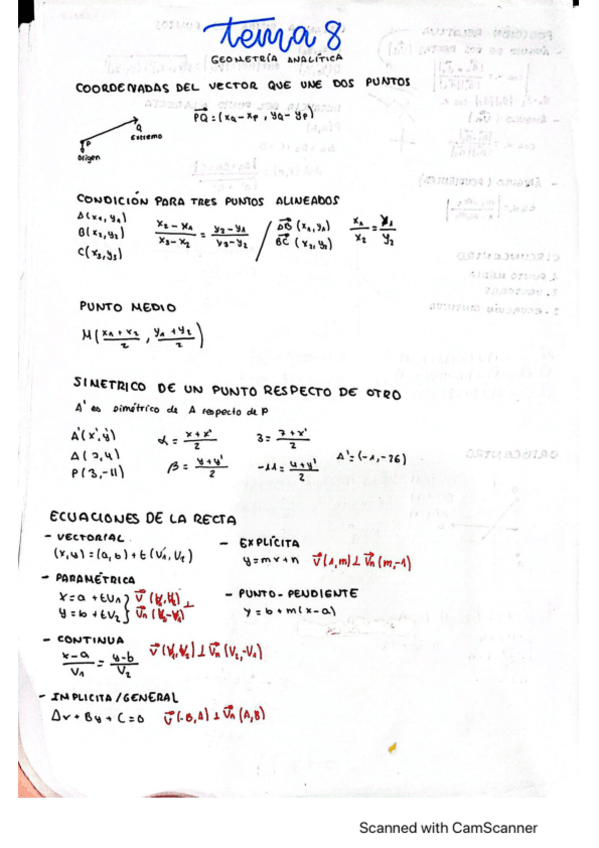 tema 8
GEOMETRÍA ANALÍTICA
COORDENADAS DEL VECTOR QUE UNE DOS PUNTOS
PQ = (xQ - xP, yQ - yP)
P
Q
extremo
origen
CONDICIÓN PARA TRES PUNTOS ALINEADOS
A(x₁, y₁)
B(x₂, y₂)
C(x₃, y₃)
x₂ - x₁ / x₃ - x₂ = y₂ - y₁ / y₃ - y₂
AB (x₁, y₁)
BC (x₂, y₂)
x₁ / x₂ = y₁ / y₂
PUNTO MEDIO
M(x₁ + x₂ / 2, y₁ + y₂ / 2)
SIMETRICO DE UN PUNTO RESPECTO DE OTRO
A' es simétrico de A respecto de P
A'(x', y')
A(7, 4)
P(3, -11)
α = x + x' / 2
β = y + y' / 2
3 = 7 + x' / 2
-11 = 4 + y' / 2
A' = (-1, -26)
ECUACIONES DE LA RECTA
- VECTORIAL
(x, y) = (a, b) + t(V₁, V₂)
- PARAMÉTRICA
x = a + tV₁
y = b + tV₂
V (V₁, V₂) ⊥
Vn (V₂, -V₁)
- CONTINUA
x - a / V₁ = y - b / V₂
V (V₁, V₂) ⊥ Vn (V₂, -V₁)
- IMPLICITA / GENERAL
Ax + By + C = 0 V(-B, A) ⊥ Vn (A, B)
- EXPLÍCITA
y = mx + n V (1, m) ⊥ Vn (m, -1)
- PUNTO-PENDIENTE
y = b + m(x - a)
Scanned with CamScanner